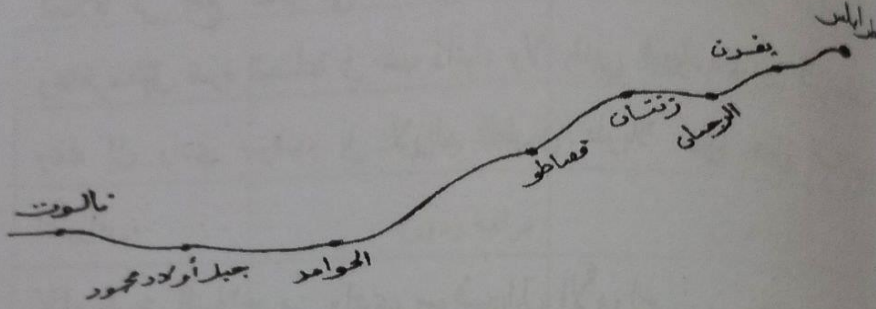 طرابلس
يفرن
الرجبان
زنتان
فساطو
الحوامد
جبل أولاد محمود
نالوت